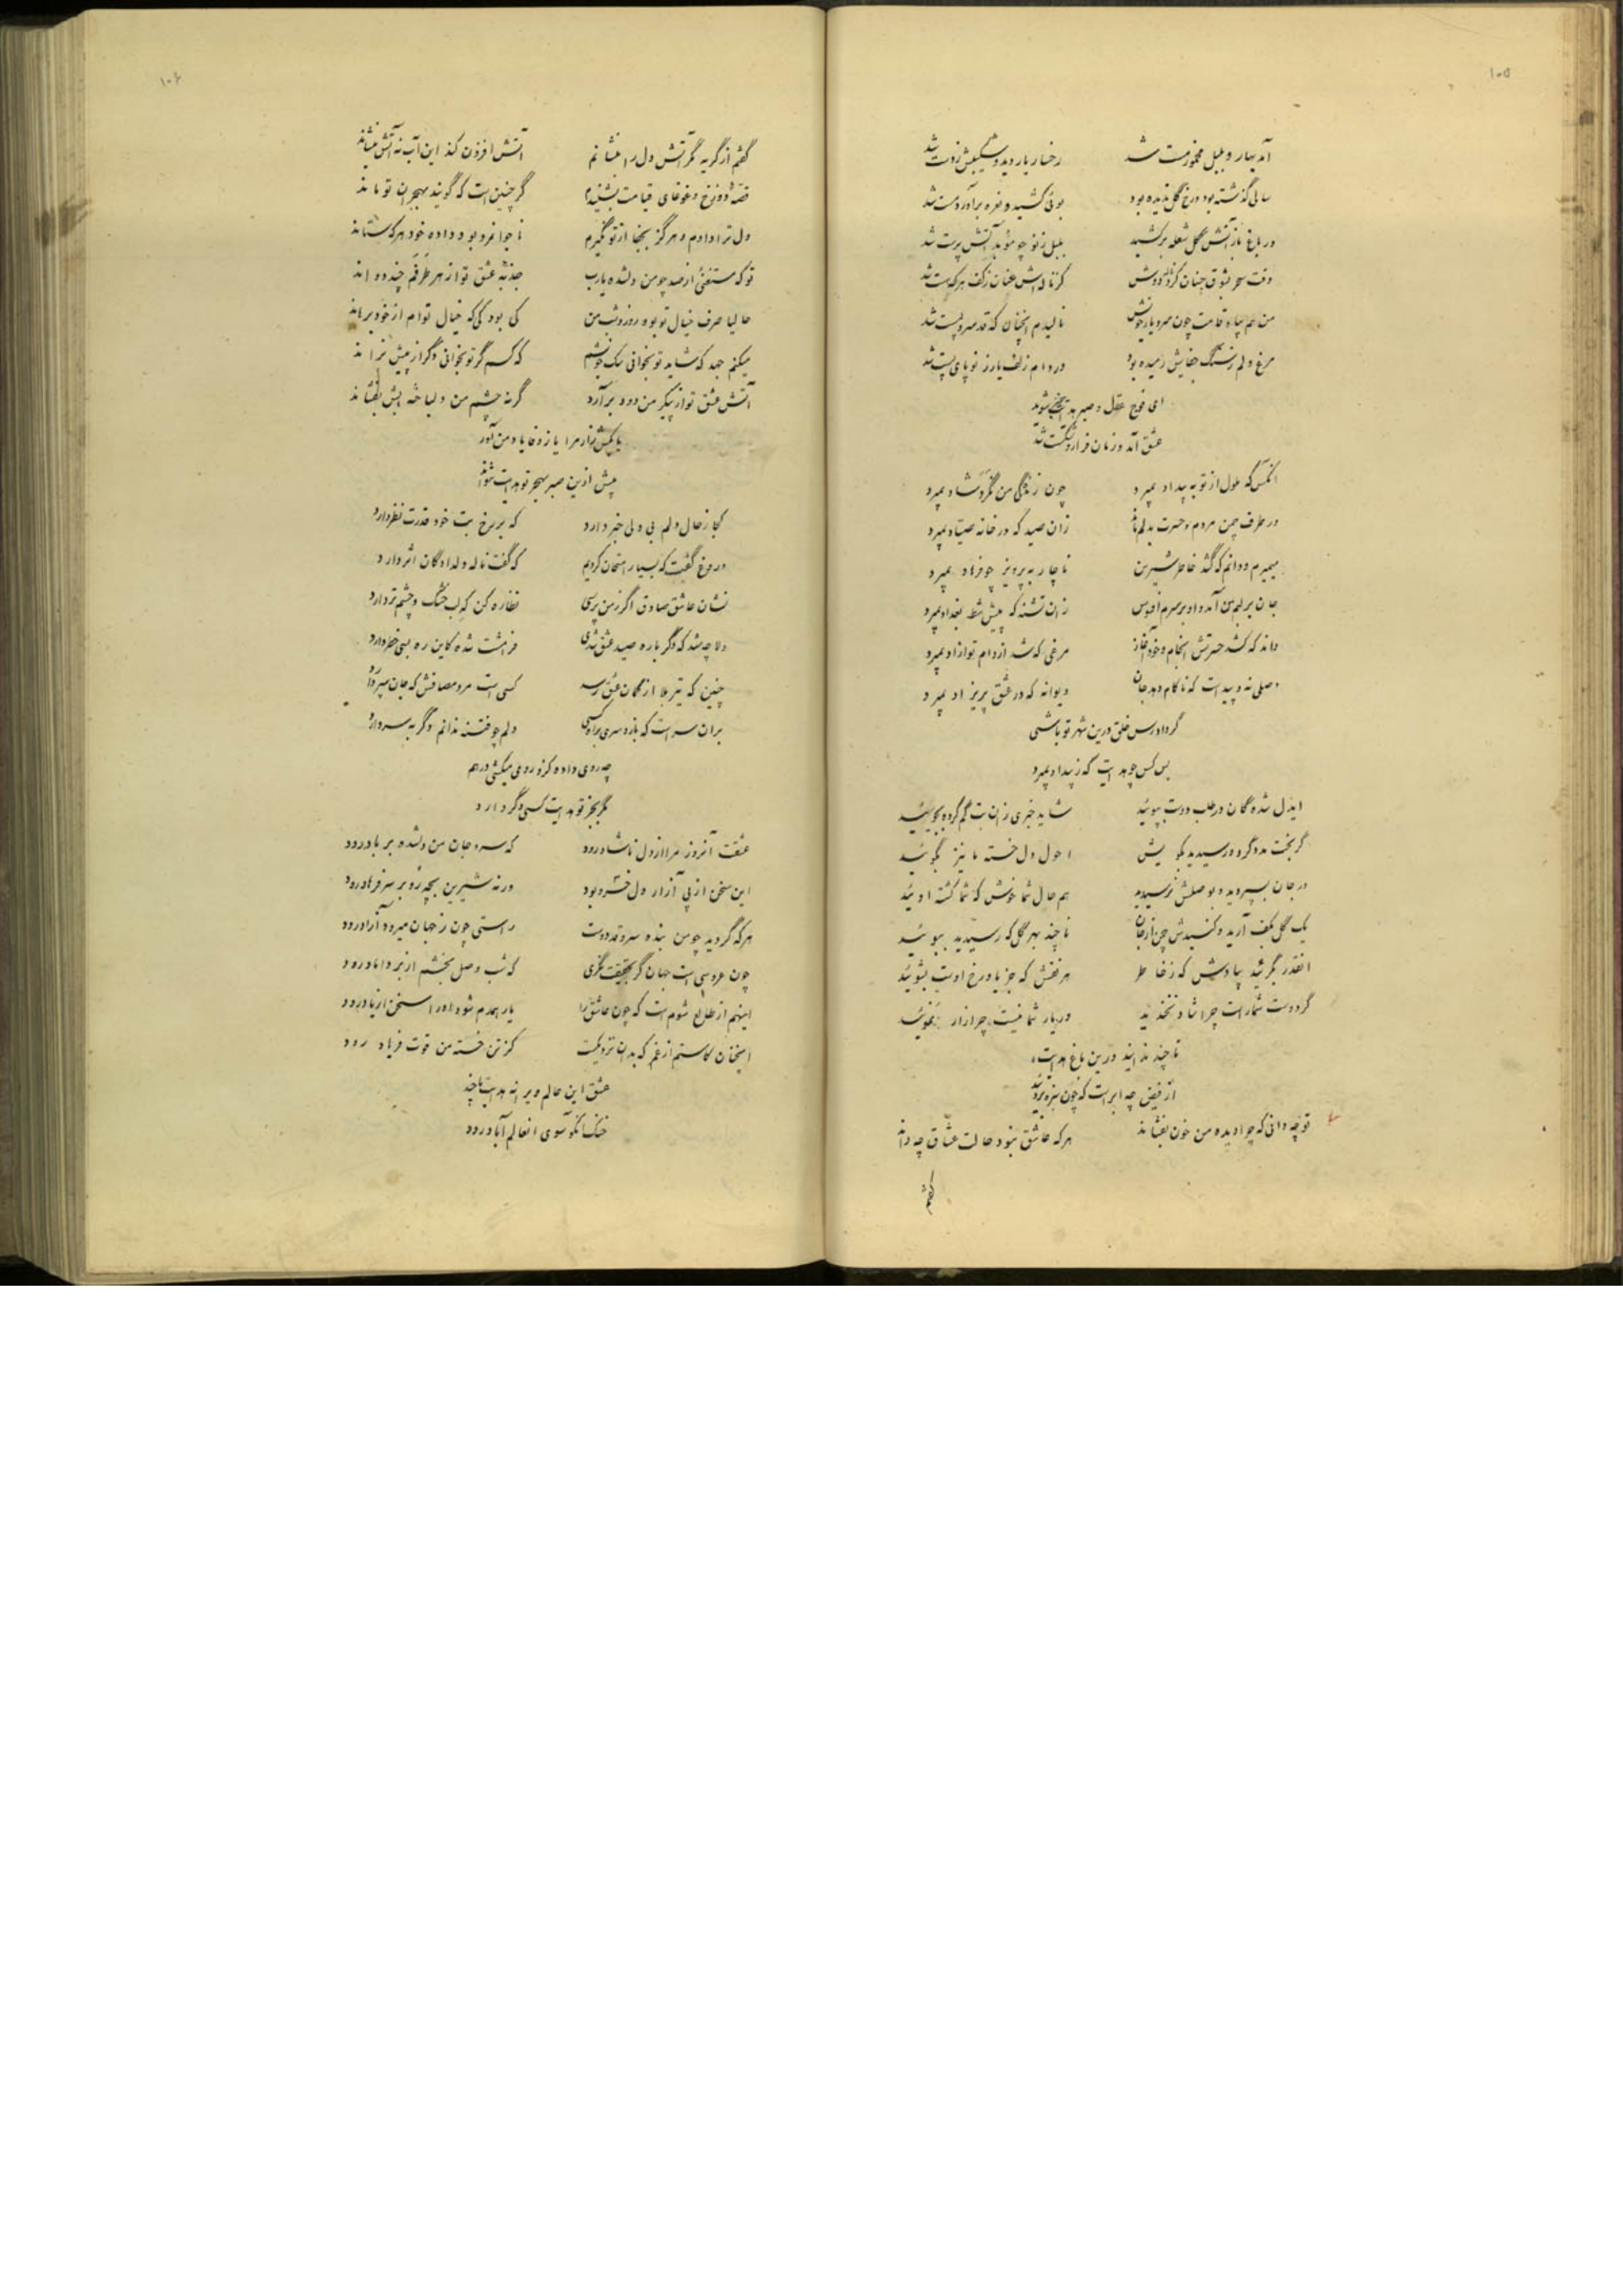 ۱۰۵
آمد بهار و بلبل مخمور مست شد رخسار یار دید و شکیبش ز دست شد
سالی گذشته بود و رخ گل ندیده بود بوئی کشید و نعره برآورد و مست شد
در باغ باز آتش گل شعله برکشید بلبل ز نو چو مؤبد آتش پرست شد
وقت سحر بشوق چنان کرد ناله دوش کز ناله اش عنان ز کف هر که هست شد
من هم بیاد قامت چون سرو یار خویش نالیدم آنچنان که قد سرو پست شد
مرغ دلم ز سنگ جفایش رمیده بود در دام زلف یار ز نو پای بست شد
ای فوج عقل و صبر هدایت شوید
عشق آمد و زمان فرار و شکست شد
آنکس که ملول از تو به بیداد بمیرد چون زندگی من نگرد شاد بمیرد
در طرف چمن مردم و حسرت بدلم ماند زان صید که در خانه صیاد بمیرد
میمیرم و دانم که گشد خاطر شیرین ناچار به پرویز چو فرهاد بمیرد
جان بر لبم آمد و او بر سرم افسوس زان تشنه که پیش شط بغداد بمیرد
داند که کشد حسرتش انجام و خود آغاز مرغی که شد از دام تو آزاد بمیرد
وصلی نه و پیداست که ناکام دهد جان دیوانه که در عشق پریزاد بمیرد
گر دادرس خلق درین شهر تو باشی
بس کس چو هدایت که ز بیداد بمیرد
ایدل شده گان در طلب دوست بپوئید شاید خبری زان بت گم کرده بجوئید
گر بخت مدد کرد و رسیدید بکویش احوال دل خسته ما نیز بگوئید
ور جان بسپردید و بوصلش نرسیدید هم حال شما خوش که شما کشته اوئید
یک گل بکف آرید و کنیدش چمن از جان تا چند بهر گل که رسیدید ببوئید
آنقدر بگرئید بیادش که ز خاطر هر نقش که جز یاد رخ اوست بشوئید
گر دوست شماراست چرا شاد نخندید ور یار شما نیست چرا زار نموئید
تا چند نداند درین باغ هدایت
از فیض چه ابر است که چون سبزه بروئید
تو چه دانی که چرا دیده من خون بفشاند هر که عاشق نبود حالت عشاق چه داند
گفتم
۱۰۶
گفتم از گریه مگر آتش دل را بنشانم آتش افزون کند این آب نه آتش بنشاند
قصه دوزخ و غوغای قیامت بشنیدم گر چنین است که گویند بهجران تو ماند
دل ترا دادم و هرگز بجفا از تو نگیرم ناجوانمرد بود داده خود هر که ستاند
تو که مستغنی از صد چو من دلشده یارب جذبه عشق تو از هر طرفم چند دواند
حالیا صرف خیال تو بود روز و شب من کی بود کی که خیال توام از خود برهاند
میکنم جهد که شاید تو بخوانی سگ خویشم که کسم گر تو بخوانی دگر از پیش نراند
آتش عشق تو از پیکر من دود برآرد گر نه چشم من دلباخته آبش بفشاند
یا بکش زار مرا یا ز وفا یاد من آور
بیش ازین صبر بهجر تو هدایت نتواند
کجا ز حال دلم بی دلی خبر دارد که بر رخ بت خود قدرت نظر دارد
دروغ گفت که بسیار امتحان کردیم که گفت ناله دلدادگان اثر دارد
نشان عاشق صادق اگر ز من پرسی نظاره کن که لب خشک و چشم تر دارد
دلا چه شد که دگر باره صید عشق شدی فرامشت شده کاین ره بسی خطر دارد
چنین که تیر بلا از کمان عشق رسد کسی است مرد مصافش که جان سپر دارد
بران سر است که بازد سری براه کسی دلم چو فتنه ندانم دگر به سر دارد
چه روی داده کزو روی میکشی در هم
مگر بجز تو هدایت کسی دگر دارد
عشقت آنروز مرا از دل ناشاد رود که سر و جان من دلشده بر باد رود
این سخن از پی آزار دل خسرو بود ورنه شیرین بچه رو بر سر فرهاد رود
هر که گردید چو من بنده سرو قد دوست راستی چون ز جهان میرود آزاد رود
چون عروسی است جهان گر بحقیقت نگری که شب وصل بخشم از بر داماد رود
اینهم از طالع شوم است که چون عاشق را یار همدم شود او را سخن از یاد رود
آنچنان کاستم از غم که بدان نزدیکست کز تن خسته من قوت فریاد رود
عشق این عالم ویرانه هدایت تا چند
خنک آنکو سوی آنعالم آباد رود